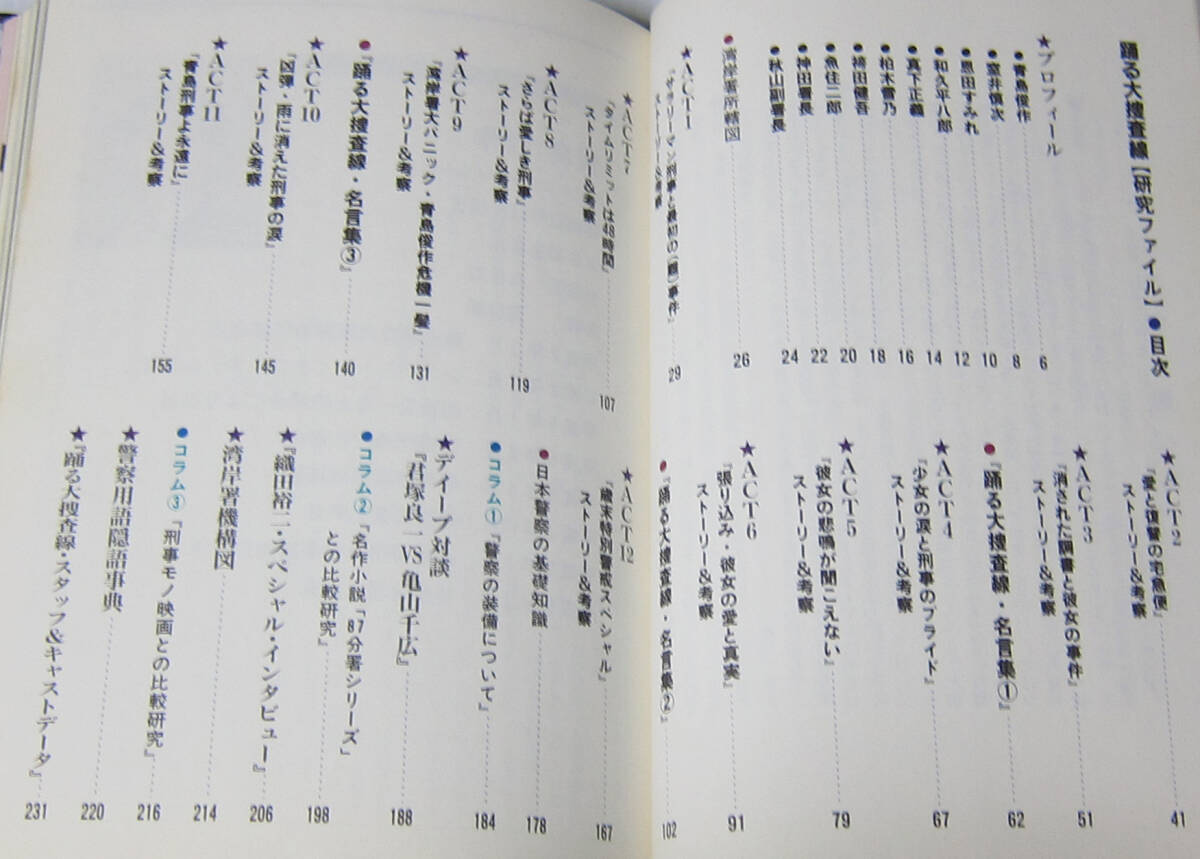 踊る大捜査線【研究ファイル】●目次
★プロフィール 6
●青島俊作 8
●室井慎次 10
●恩田すみれ 12
●和久平八郎 14
●真下正義 16
●柏木雪乃 18
●袴田健吾 20
●魚住二郎 22
●神田署長 24
●秋山副署長
●湾岸署所轄図 26
★ACT1
『サラリーマン刑事と最初の(難)事件』
ストーリー&考察 29
★ACT2
『愛と復讐の宅急便』
ストーリー&考察 41
★ACT3
『消された調書と彼女の事件』
ストーリー&考察 51
●『踊る大捜査線・名言集①』 62
★ACT4
『少女の涙と刑事のプライド』
ストーリー&考察 67
★ACT5
『彼女の悲鳴が聞こえない』
ストーリー&考察 79
★ACT6
『張り込み・彼女の愛と真実』
ストーリー&考察 91
●『踊る大捜査線・名言集②』 102
★ACT7
『タイムリミットは48時間』
ストーリー&考察 107
★ACT8
『さらば愛しき刑事』
ストーリー&考察 119
★ACT9
『湾岸署大パニック・青島俊作危機一髪』
ストーリー&考察 131
●『踊る大捜査線・名言集③』 140
★ACT10
『凶弾・雨に消えた刑事の涙』
ストーリー&考察 145
★ACT11
『青島刑事よ永遠に』
ストーリー&考察 155
★ACT12
『歳末特別警戒スペシャル』
ストーリー&考察 167
●日本警察の基礎知識 178
●コラム①『警察の装備について』 184
★ディープ対談
『君塚良一VS亀山千広』 188
●コラム②『名作小説「87分署シリーズ」
との比較研究』 198
★『織田裕二・スペシャル・インタビュー』 206
★湾岸署機構図 214
●コラム③『刑事モノ映画との比較研究』 216
★警察用語隠語事典 220
★『踊る大捜査線・スタッフ&キャストデータ』 231